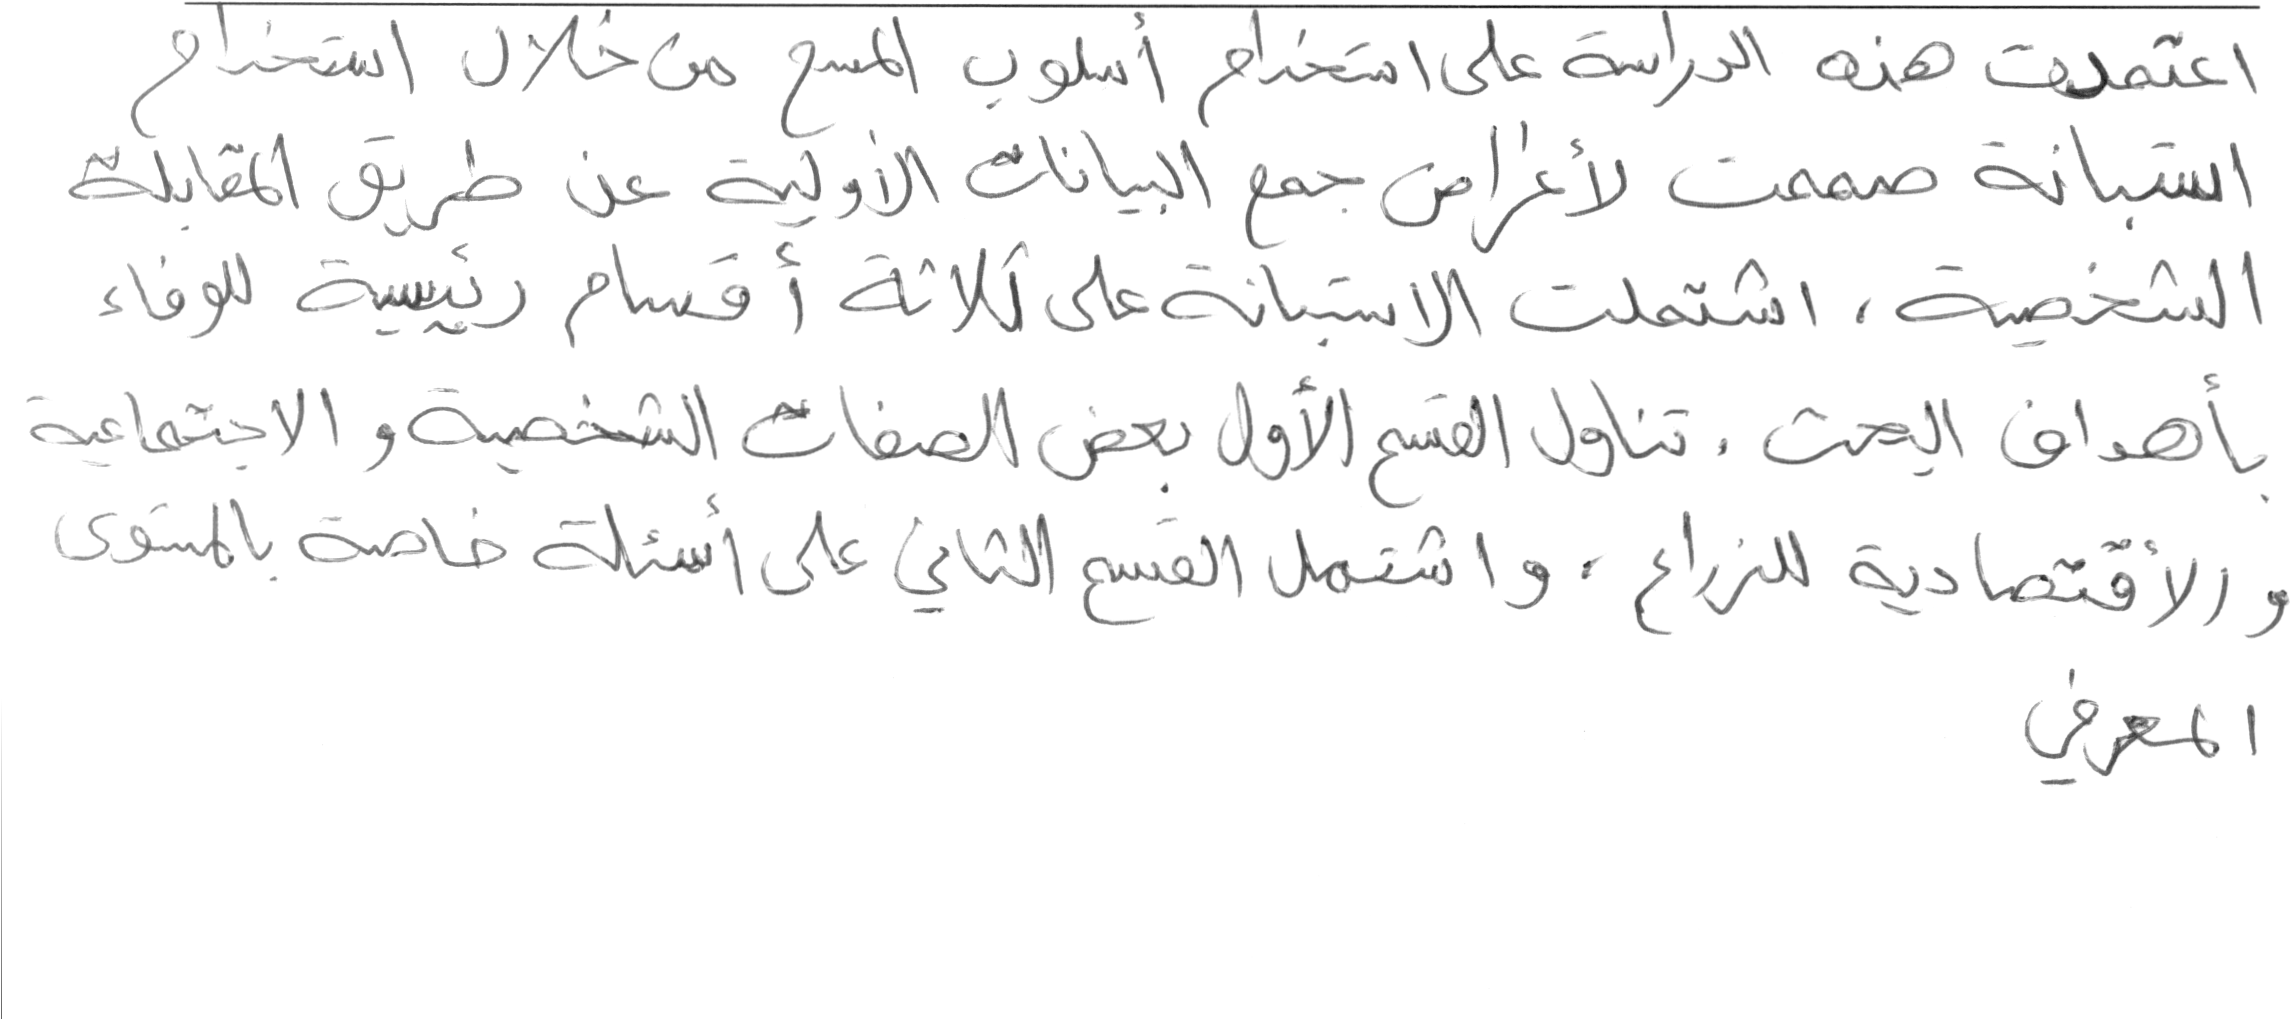 اعتمدت هذه الدراسة على استخدام أسلوب المسح من خلال استخدام
استبانة صممت لأغراض جمع البيانات الأولية عن طريق المقابلة
الشخصية ، اشتملت الاستبانة على ثلاثة أقسام رئيسية للوفاء
بأهداف البحث . تناول القسم الأول بعض الصفات الشخصية و الاجتماعية
و الأقتصادية للزراع ، و اشتمل القسم الثاني على أسئلة خاصة بالمستوى
المعرفي